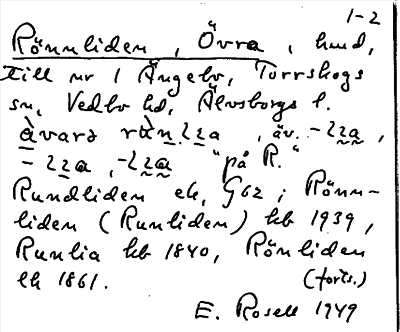 1-2
Rönnliden, Övra, hmd,
till nr 1 Ängebo, Torrskogs
sn, Vedbo hd, Älvsborgs l.
àvarə
, äv.
"på R."
Rundliden ek, G62; Rönn-
liden (Runliden) kb 1939,
Runlia kb 1840, Rönliden
ek 1861. (forts.)
E. Rosell 1949